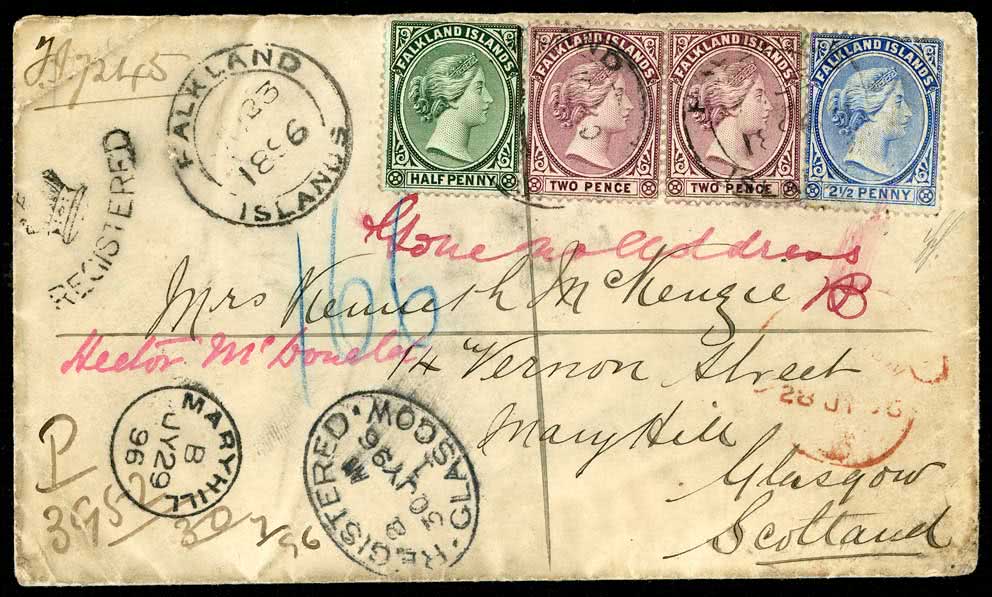 7245
FALKLAND ISLANDS
23
1896
REGISTERED
FALKLAND ISLANDS
HALF PENNY
FALKLAND ISLANDS
TWO PENCE
FALKLAND ISLANDS
TWO PENCE
FALKLAND ISLANDS
2½ PENNY
166
Gone no address
Mrs Kenneth McKenzie
Hector McDonald
14 Vernon Street
Mary Hill
Glasgow
Scotland
28 JY 96
MARYHILL
B
JY 29
96
REGISTERED. GLASGOW.
B
30 JY 96
P
3952
30/7/96